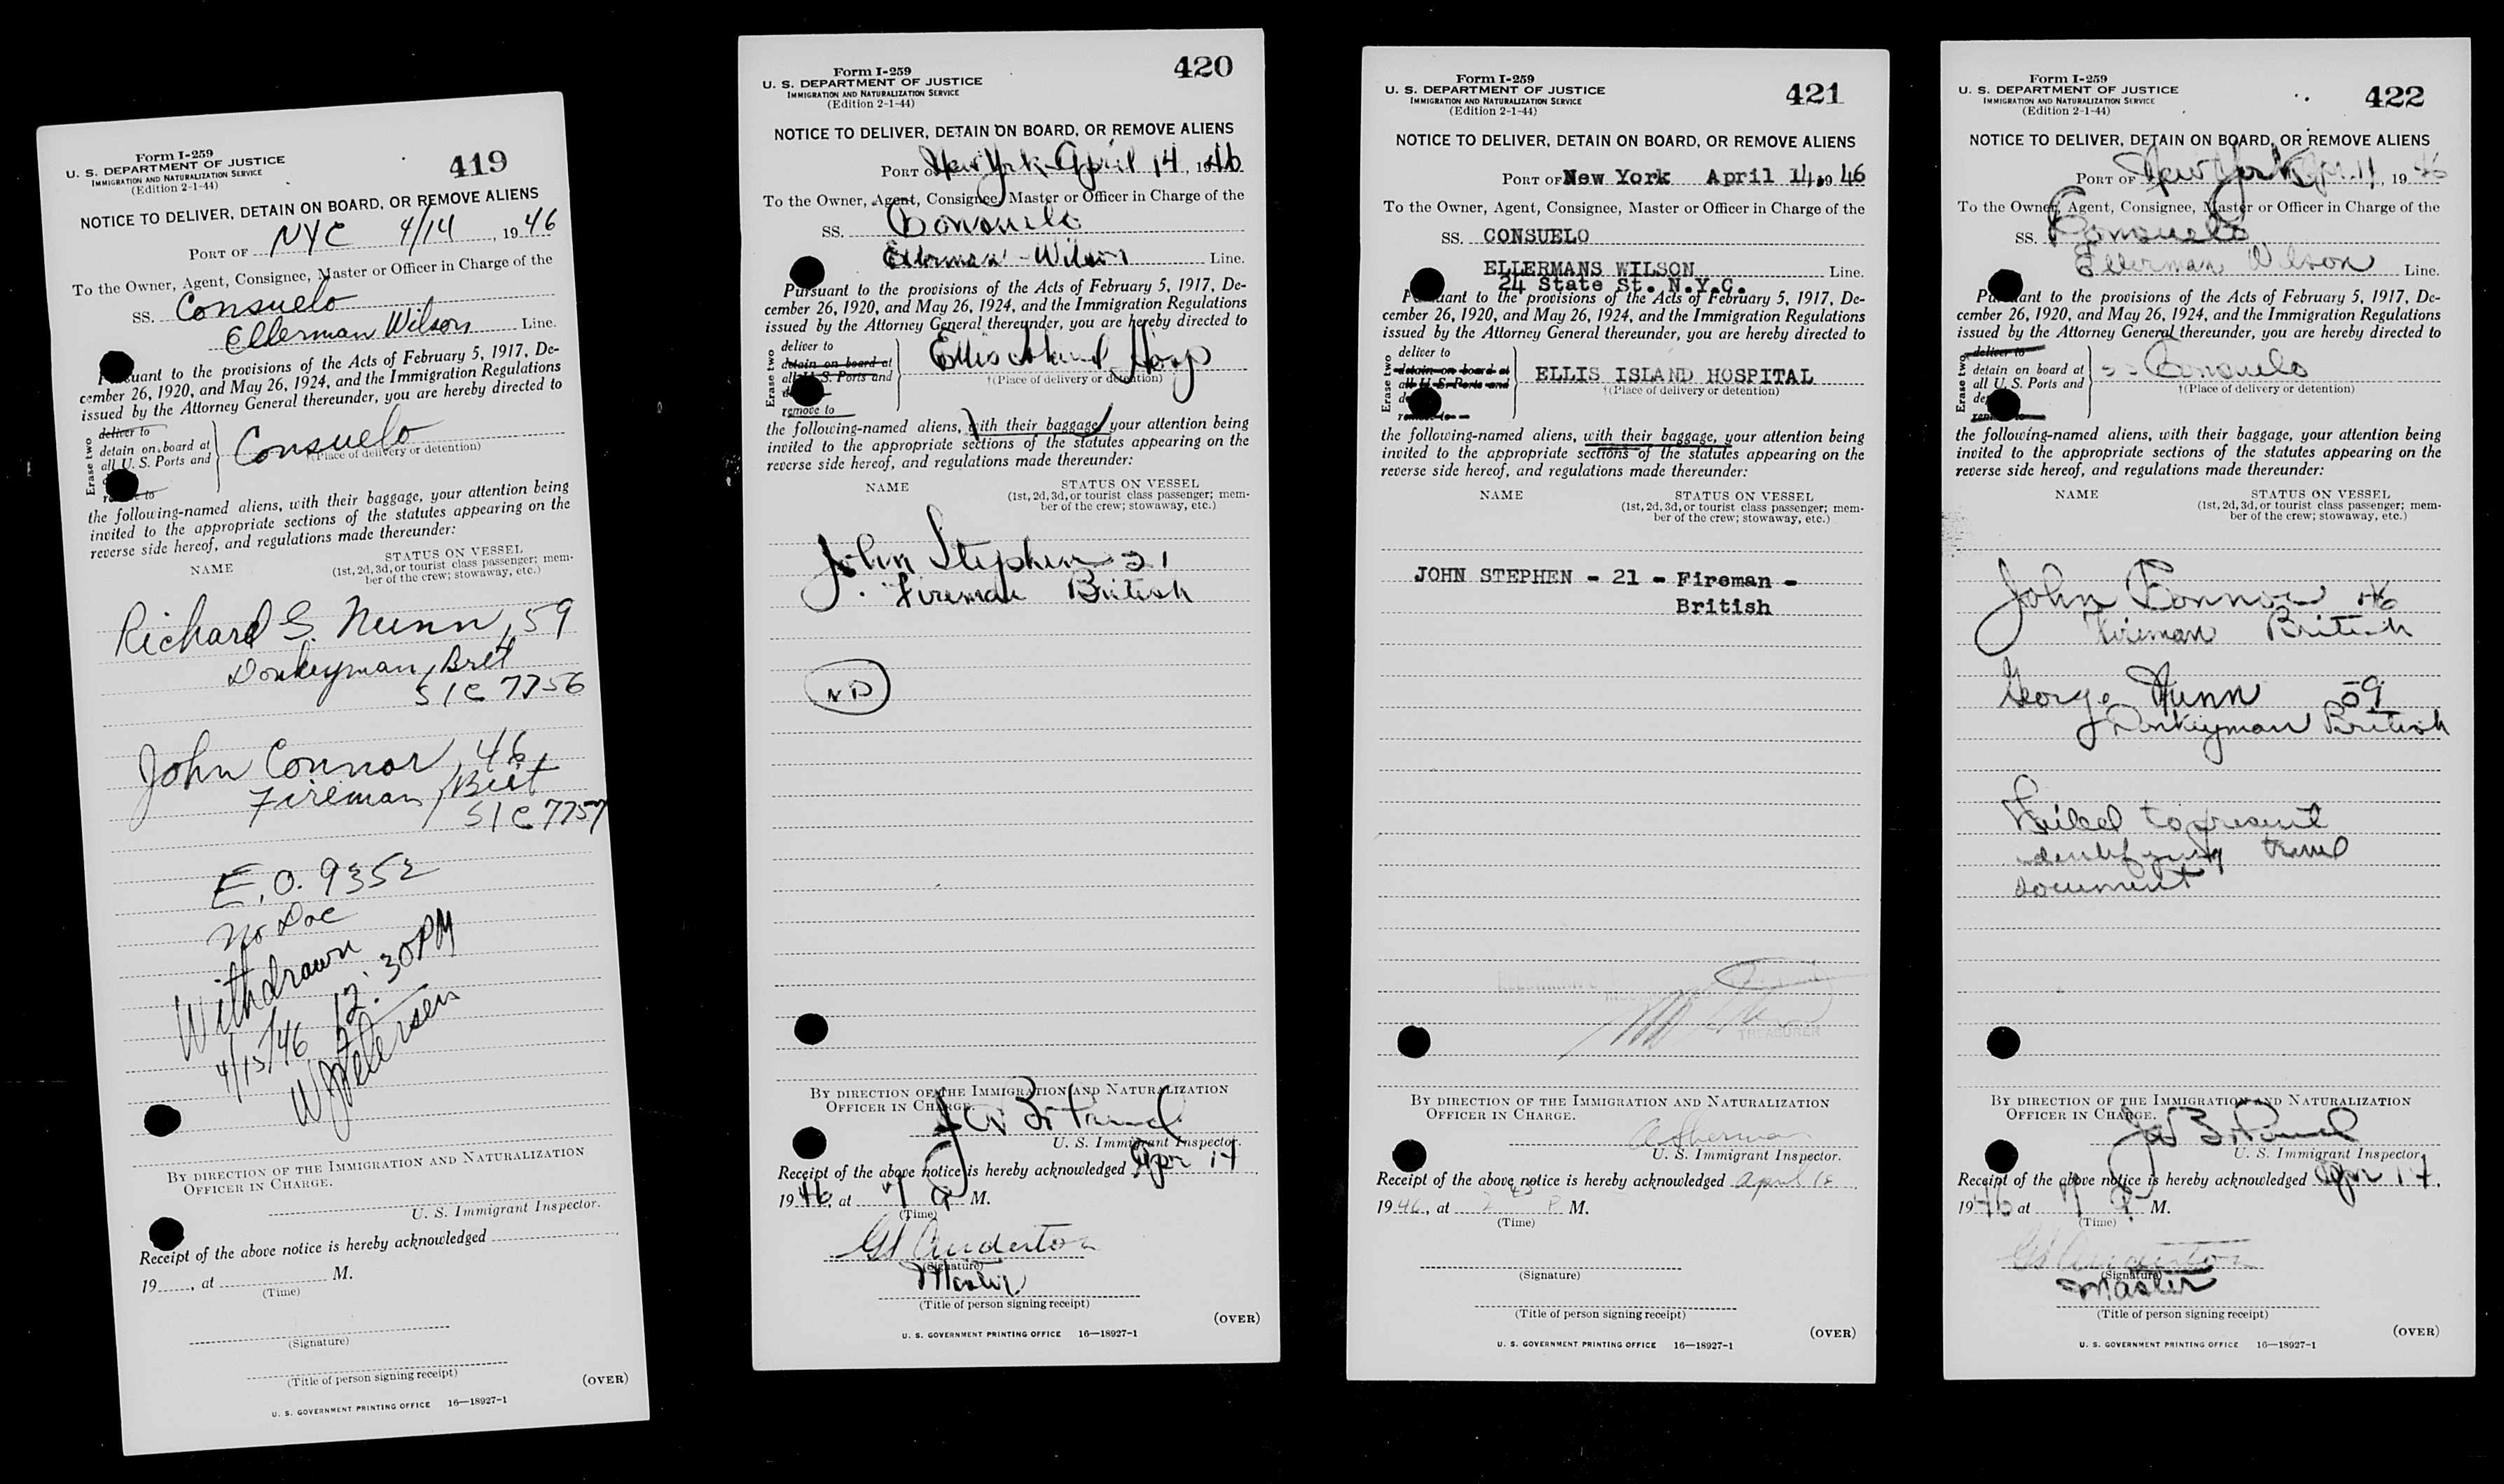 Form I-259
U. S. DEPARTMENT OF JUSTICE
IMMIGRATION AND NATURALIZATION SERVICE
(Edition 2-1-44)
419
NOTICE TO DELIVER, DETAIN ON BOARD, OR REMOVE ALIENS
PORT OF NYC 4/14, 1946
To the Owner, Agent, Consignee, Master or Officer in Charge of the
SS. Consuelo
Ellerman Wilson Line.
Pursuant to the provisions of the Acts of February 5, 1917, De-
cember 26, 1920, and May 26, 1924, and the Immigration Regulations
issued by the Attorney General thereunder, you are hereby directed to
Erase two
deliver to
detain on board at
all U. S. Ports and
remove to
Consuelo
†(Place of delivery or detention)
the following-named aliens, with their baggage, your attention being
invited to the appropriate sections of the statutes appearing on the
reverse side hereof, and regulations made thereunder:
NAME
STATUS ON VESSEL
(1st, 2d, 3d, or tourist class passenger; mem-
ber of the crew; stowaway, etc.)
Richard G. Nunn, 59
Donkeyman, Brit
SIC 7756
John Connor, 46
Fireman, Brit
SIC 7757
E.O. 9352
No Doc
Withdrawn
4/15/46 12:30PM
W Petersen
BY DIRECTION OF THE IMMIGRATION AND NATURALIZATION
OFFICER IN CHARGE.
U. S. Immigrant Inspector.
Receipt of the above notice is hereby acknowledged
19, at M.
(Time)
(Signature)
(Title of person signing receipt)
(OVER)
U. S. GOVERNMENT PRINTING OFFICE 16—18927-1
Form I-259
U. S. DEPARTMENT OF JUSTICE
IMMIGRATION AND NATURALIZATION SERVICE
(Edition 2-1-44)
420
NOTICE TO DELIVER, DETAIN ON BOARD, OR REMOVE ALIENS
PORT OF New York April 14, 1946
To the Owner, Agent, Consignee, Master or Officer in Charge of the
SS. Consuelo
Ellerman - Wilson Line.
Pursuant to the provisions of the Acts of February 5, 1917, De-
cember 26, 1920, and May 26, 1924, and the Immigration Regulations
issued by the Attorney General thereunder, you are hereby directed to
Erase two
deliver to
detain on board at
all U. S. Ports and
remove to
Ellis Island Hosp
†(Place of delivery or detention)
the following-named aliens, with their baggage, your attention being
invited to the appropriate sections of the statutes appearing on the
reverse side hereof, and regulations made thereunder:
NAME
STATUS ON VESSEL
(1st, 2d, 3d, or tourist class passenger; mem-
ber of the crew; stowaway, etc.)
John Stephen 21
Fireman British
ND
BY DIRECTION OF THE IMMIGRATION AND NATURALIZATION
OFFICER IN CHARGE.
U. S. Immigrant Inspector.
Receipt of the above notice is hereby acknowledged Apr 14
1946, at 7 P M.
(Time)
Anderton
(Signature)
Master
(Title of person signing receipt)
(OVER)
U. S. GOVERNMENT PRINTING OFFICE 16—18927-1
Form I-259
U. S. DEPARTMENT OF JUSTICE
IMMIGRATION AND NATURALIZATION SERVICE
(Edition 2-1-44)
421
NOTICE TO DELIVER, DETAIN ON BOARD, OR REMOVE ALIENS
PORT OF New York April 14, 1946
To the Owner, Agent, Consignee, Master or Officer in Charge of the
SS. CONSUELO
ELLERMANS WILSON Line.
24 State St. N.Y.C.
Pursuant to the provisions of the Acts of February 5, 1917, De-
cember 26, 1920, and May 26, 1924, and the Immigration Regulations
issued by the Attorney General thereunder, you are hereby directed to
Erase two
deliver to
detain on board at
all U. S. Ports and
remove to
ELLIS ISLAND HOSPITAL
†(Place of delivery or detention)
the following-named aliens, with their baggage, your attention being
invited to the appropriate sections of the statutes appearing on the
reverse side hereof, and regulations made thereunder:
NAME
STATUS ON VESSEL
(1st, 2d, 3d, or tourist class passenger; mem-
ber of the crew; stowaway, etc.)
JOHN STEPHEN - 21 - Fireman -
British
TREASURER
BY DIRECTION OF THE IMMIGRATION AND NATURALIZATION
OFFICER IN CHARGE.
A Sherman
U. S. Immigrant Inspector.
Receipt of the above notice is hereby acknowledged April 18
1946, at 2 45 P. M.
(Time)
(Signature)
(Title of person signing receipt)
(OVER)
U. S. GOVERNMENT PRINTING OFFICE 16—18927-1
Form I-259
U. S. DEPARTMENT OF JUSTICE
IMMIGRATION AND NATURALIZATION SERVICE
(Edition 2-1-44)
422
NOTICE TO DELIVER, DETAIN ON BOARD, OR REMOVE ALIENS
PORT OF New York Apr. 14, 1946
To the Owner, Agent, Consignee, Master or Officer in Charge of the
SS. Consuelo
Ellerman Wilson Line.
Pursuant to the provisions of the Acts of February 5, 1917, De-
cember 26, 1920, and May 26, 1924, and the Immigration Regulations
issued by the Attorney General thereunder, you are hereby directed to
Erase two
deliver to
detain on board at
all U. S. Ports and
remove to
SS Consuelo
†(Place of delivery or detention)
the following-named aliens, with their baggage, your attention being
invited to the appropriate sections of the statutes appearing on the
reverse side hereof, and regulations made thereunder:
NAME
STATUS ON VESSEL
(1st, 2d, 3d, or tourist class passenger; mem-
ber of the crew; stowaway, etc.)
John Connor 46
Fireman British
George Nunn 59
Donkeyman British
Failed to present
identifying travel
document
BY DIRECTION OF THE IMMIGRATION AND NATURALIZATION
OFFICER IN CHARGE.
U. S. Immigrant Inspector.
Receipt of the above notice is hereby acknowledged Apr 14,
1946 at 7 P M.
(Time)
Anderton
(Signature)
Master
(Title of person signing receipt)
(OVER)
U. S. GOVERNMENT PRINTING OFFICE 16—18927-1